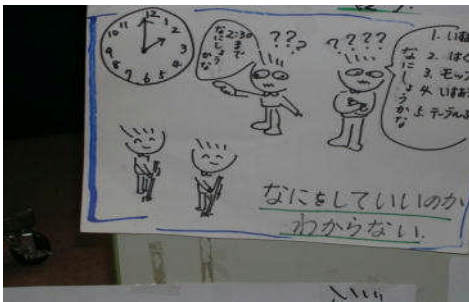 12
1
2
3
4
5
6
7
8
9
10
11
2:30
まで
なにしよう
かな
???
????
なにしようかな
1. いす
2. はく
3. モップ
4. いす
5. テーブル
なにをしていいのか
わからない.